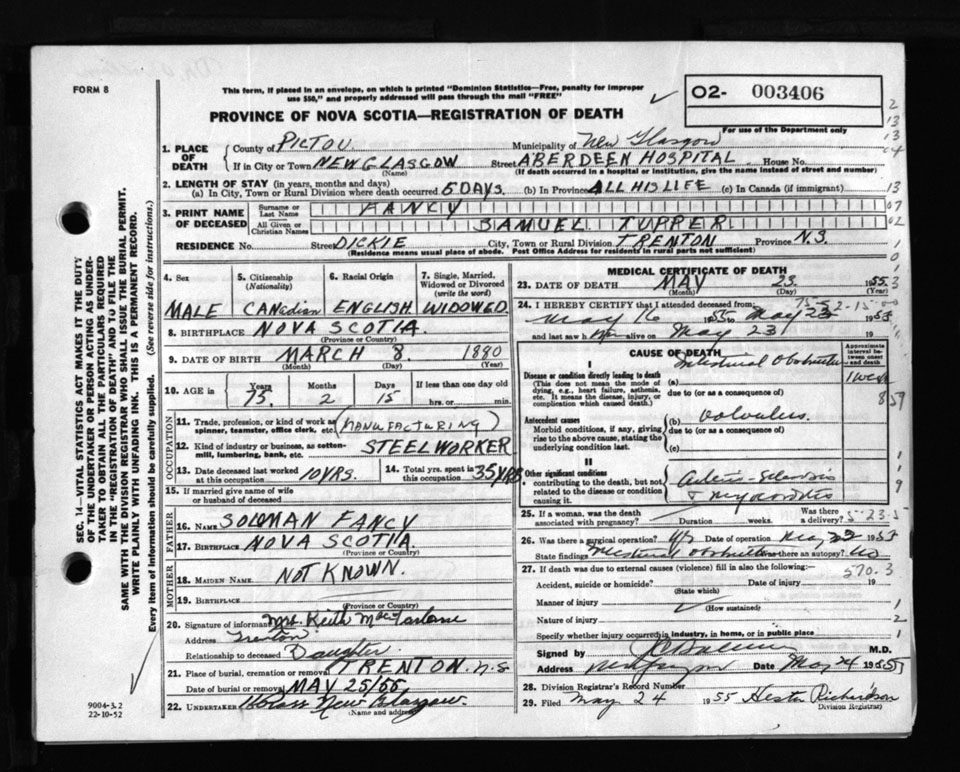 FORM 8
This form, if placed in an envelope, on which is printed "Dominion Statistics—Free, penalty for improper
use $50," and properly addressed will pass through the mail "FREE"
O2- 003406
For use of the Department only
PROVINCE OF NOVA SCOTIA—REGISTRATION OF DEATH
1. PLACE OF DEATH
County of PICTOU Municipality of New Glasgow
If in City or Town NEW GLASGOW Street ABERDEEN HOSPITAL House No.
(Name) (If death occurred in a hospital or institution, give the name instead of street and number)
2. LENGTH OF STAY (in years, months and days)
(a) In City, Town or Rural Division where death occurred 6 DAYS. (b) In Province ALL HIS LIFE (c) In Canada (if immigrant)
3. PRINT NAME OF DECEASED
Surname or Last Name FANCY
All Given or Christian Names SAMUEL TUPPER
RESIDENCE No. Street DICKIE City, Town or Rural Division TRENTON Province N.S.
(Residence means usual place of abode. Post Office Address for residents in rural parts not sufficient)
4. Sex
MALE
5. Citizenship (Nationality)
CANadian
6. Racial Origin
ENGLISH
7. Single, Married, Widowed or Divorced (write the word)
WIDOWED.
8. BIRTHPLACE NOVA SCOTIA.
(Province or Country)
9. DATE OF BIRTH MARCH 8. 1880
(Month) (Day) (Year)
10. AGE in Years Months Days If less than one day old
75. 2 15 hrs. or min.
OCCUPATION
11. Trade, profession, or kind of work as spinner, teamster, office clerk, etc. (MANUFACTURING)
12. Kind of industry or business, as cotton-mill, lumbering, bank, etc. STEEL WORKER
13. Date deceased last worked at this occupation 10 YRS.
14. Total yrs. spent in this occupation 35 YRS
15. If married give name of wife or husband of deceased
FATHER
16. NAME SOLOMAN FANCY
17. BIRTHPLACE NOVA SCOTIA
(Province or Country)
MOTHER
18. MAIDEN NAME NOT KNOWN.
19. BIRTHPLACE
(Province or Country)
20. Signature of informant Mrs. Keith MacFarlane
Address Trenton
Relationship to deceased Daughter.
21. Place of burial, cremation or removal TRENTON. N.S
Date of burial or removal MAY 25/55
22. UNDERTAKER New Glasgow.
(Name and address)
MEDICAL CERTIFICATE OF DEATH
23. DATE OF DEATH MAY 23. 1955
(Month) (Day)
24. I HEREBY CERTIFY that I attended deceased from:
May 16 1955 May 23 1955
and last saw him alive on May 23 19
CAUSE OF DEATH
Approximate interval between onset and death
I
Disease or condition directly leading to death
(This does not mean the mode of dying, e.g., heart failure, asthenia, etc. It means the disease, injury, or complication which caused death.)
(a) Intestinal Obstruction 1 week
due to (or as a consequence of)
Antecedent causes
Morbid conditions, if any, giving rise to the above cause, stating the underlying condition last.
(b) volvulus.
due to (or as a consequence of)
(c)
II
Other significant conditions
contributing to the death, but not related to the disease or condition causing it.
Arterio-Sclerosis
+ myocarditis
25. If a woman, was the death associated with pregnancy? Duration weeks. Was there a delivery?
26. Was there a surgical operation? yes Date of operation May 22 1955
State findings Intestinal Obstruction Was there an autopsy? No
27. If death was due to external causes (violence) fill in also the following:—
570.3
Accident, suicide or homicide? Date of injury 19
(State which)
Manner of injury
(How sustained)
Nature of injury
Specify whether injury occurred in industry, in home, or in public place
Signed by M.D.
Address New Glasgow Date May 24 1955
28. Division Registrar's Record Number
29. Filed May 24 1955 Hester Richardson
(Division Registrar)
SEC. 14—VITAL STATISTICS ACT MAKES IT THE DUTY
OF THE UNDERTAKER OR PERSON ACTING AS UNDER-
TAKER TO OBTAIN ALL THE PARTICULARS REQUIRED
IN THE "REGISTRATION OF DEATH" AND TO FILE THE
SAME WITH THE DIVISION REGISTRAR WHO SHALL ISSUE THE BURIAL PERMIT.
WRITE PLAINLY WITH UNFADING INK. THIS IS A PERMANENT RECORD.
Every item of information should be carefully supplied. (See reverse side for instructions.)
9004-3.2
22-10-52